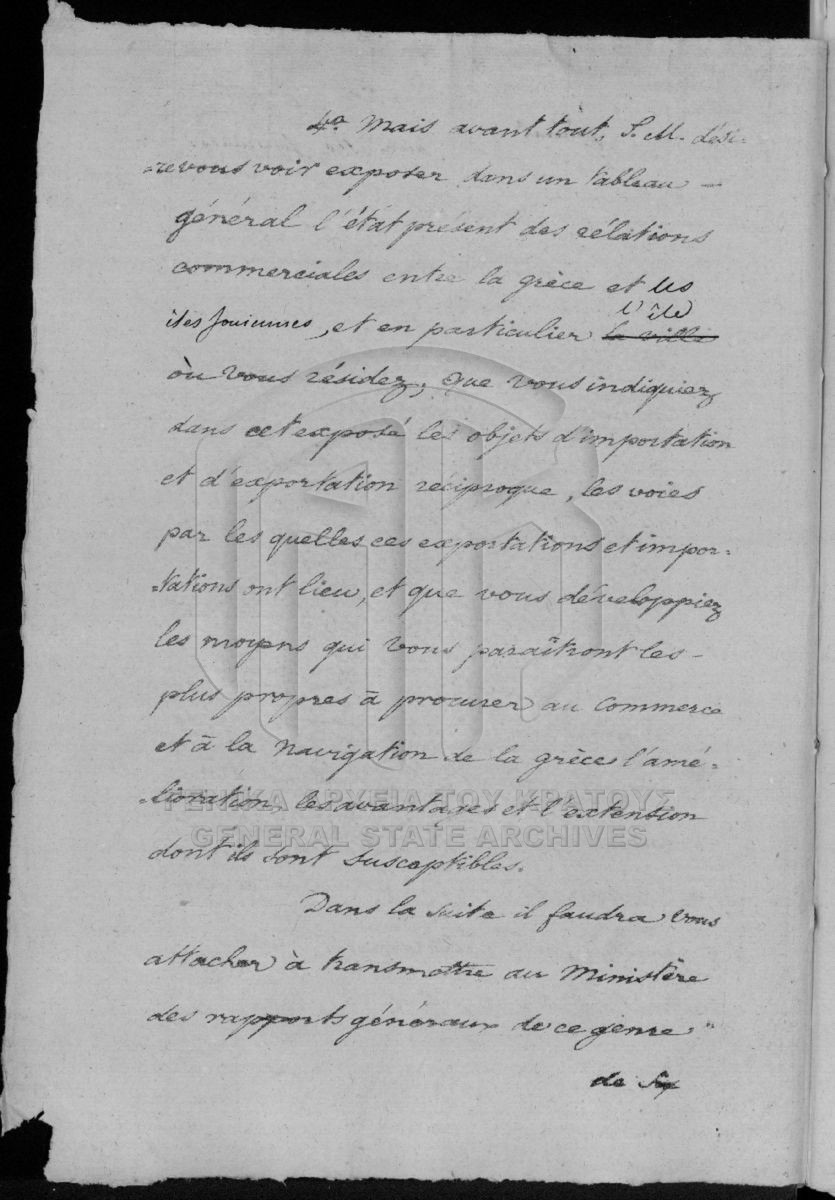 4º Mais avant tout, S. M. dési-
=re vous voir exposer dans un tableau —
général l'état présent des rélations
commerciales entre la grèce et les
l'île
iles Joniennes, et en particulier la ville
où vous résidez; que vous indiquiez
dans cet exposé les objets d'importation
et d'exportation réciproque, les voies
par les quelles ces exportations et impor=
=tations ont lieu, et que vous développiez
les moyens qui vous paraîtront les -
plus propres à procurer au commerce
et à la navigation de la grèce l'amé=
=lioration, les avantages et l'extension
dont ils sont susceptibles.
Dans la suite il faudra vous
attacher à transmettre au Ministère
des rapports généraux de ce genre "
de six
ΓΕΝΙΚΑ ΑΡΧΕΙΑ ΤΟΥ ΚΡΑΤΟΥΣ
GENERAL STATE ARCHIVES